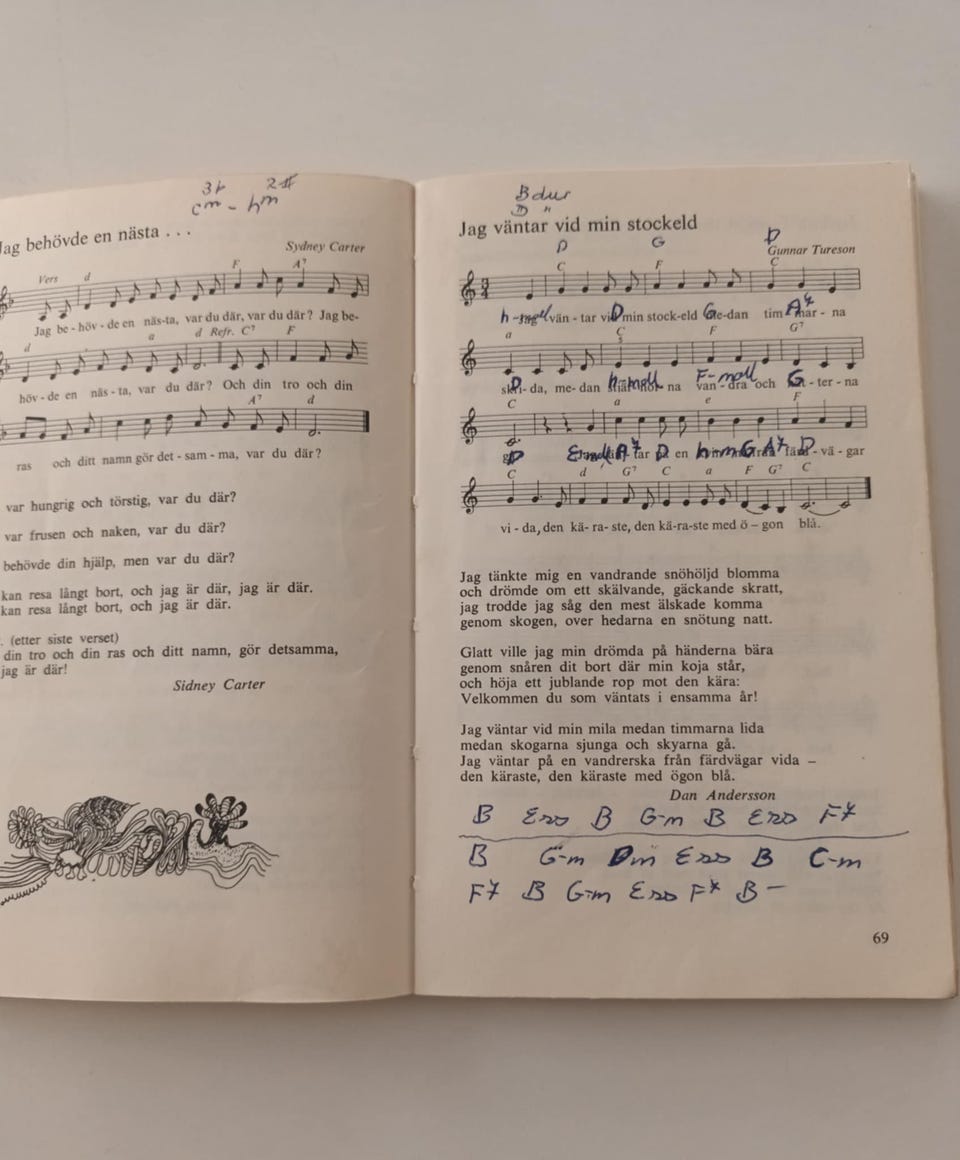 3b 2#
cm - hm
Jag behövde en nästa . . .
Sydney Carter
Vers d F A7
Jag be - höv - de en näs-ta, var du där, var du där? Jag be-
d a d Refr. C7 F
höv - de en näs - ta, var du där? Och din tro och din
A7 d
ras och ditt namn gör det - sam - ma, var du där?
var hungrig och törstig, var du där?
var frusen och naken, var du där?
behövde din hjälp, men var du där?
kan resa långt bort, och jag är där, jag är där.
kan resa långt bort, och jag är där.
. (etter siste verset)
din tro och din ras och ditt namn, gör detsamma,
jag är där!
Sidney Carter
B dur
D "
Jag väntar vid min stockeld
D G D
Gunnar Tureson
C F C
3
4
h-moll D G A7
vän - tar min stock-eld tim - - na
a C F G7
D h-moll F-moll G
da, me-dan na och - ter - na
C a e F
D A7 D h-m G A7 D
en - vä - gar
C d G7 C a F G7 C
vi - da, den kä - ra - ste, den kä-ra-ste med ö - gon blå.
Jag tänkte mig en vandrande snöhöljd blomma
och drömde om ett skälvande, gäckande skratt,
jag trodde jag såg den mest älskade komma
genom skogen, over hedarna en snötung natt.
Glatt ville jag min drömda på händerna bära
genom snåren dit bort där min koja står,
och höja ett jublande rop mot den kära:
Velkommen du som väntats i ensamma år!
Jag väntar vid min mila medan timmarna lida
medan skogarna sjunga och skyarna gå.
Jag väntar på en vandrerska från färdvägar vida –
den käraste, den käraste med ögon blå.
Dan Andersson
B Ess B G-m B Ess F7
B G-m Dm Ess B C-m
F7 B G-m Ess F7 B -
69